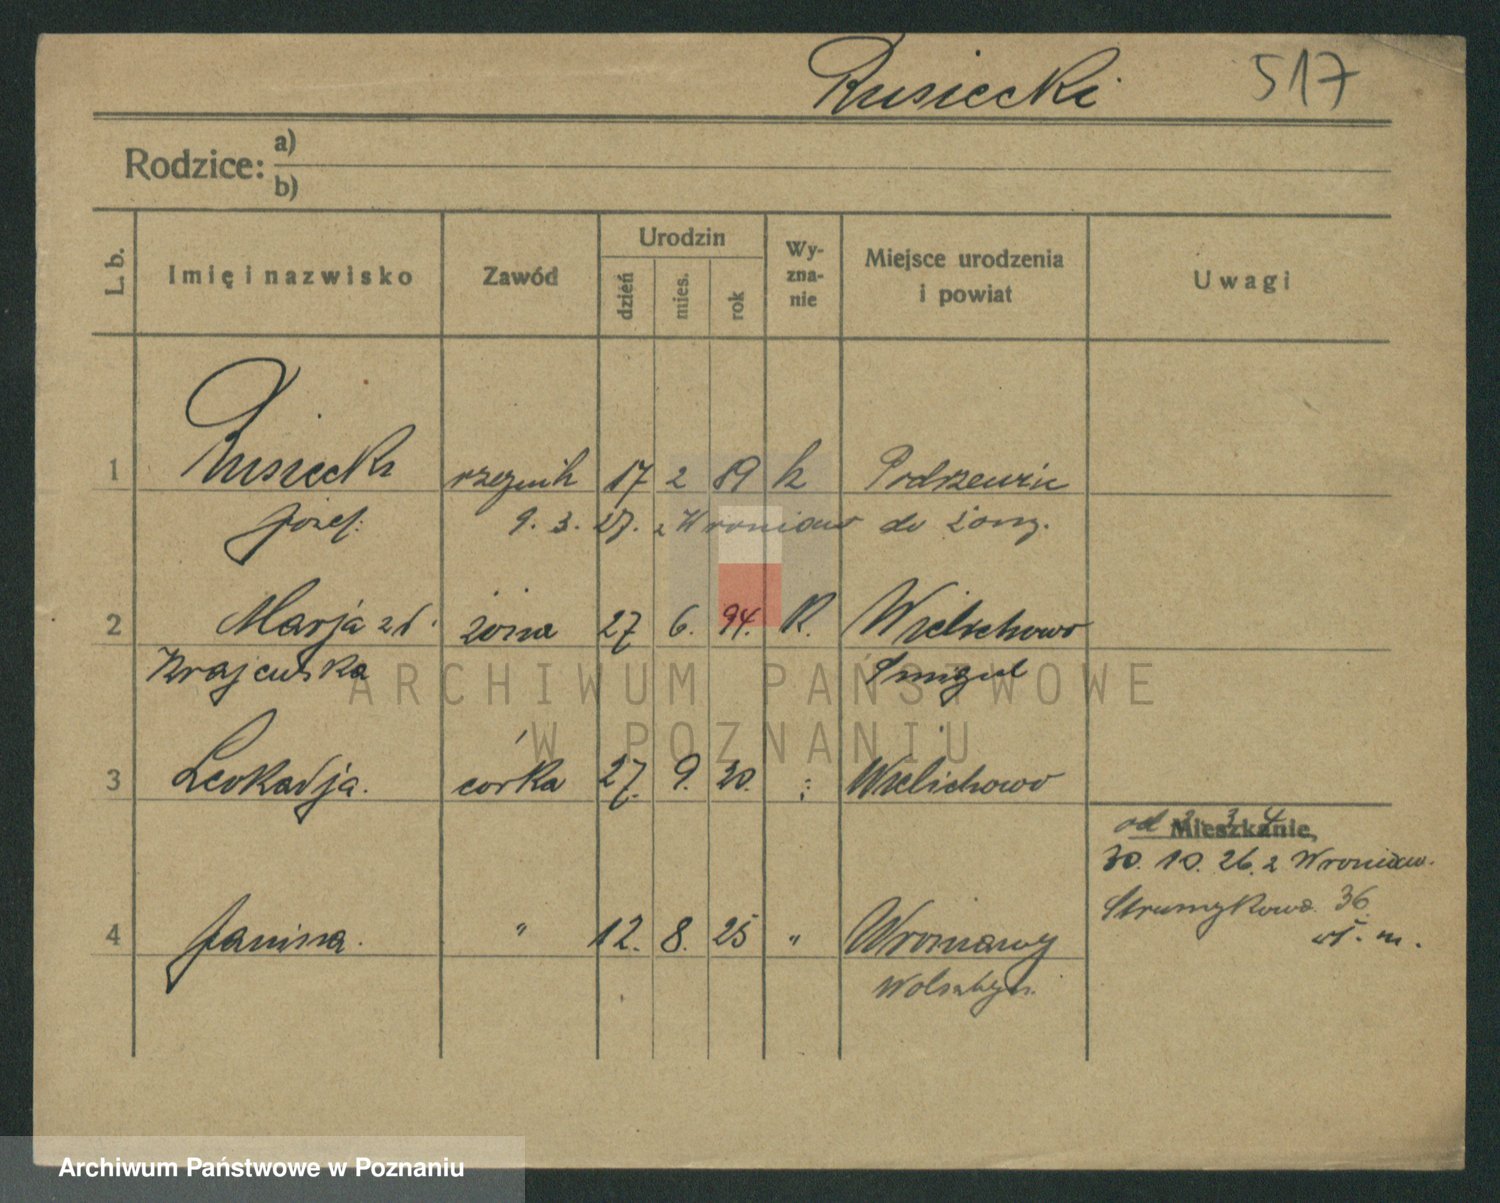 Rusiecki 517
Rodzice: a)
b)
L. b. Imię i nazwisko Zawód Urodzin dzień mies. rok Wy-zna-nie Miejsce urodzenia i powiat Uwagi
1 Rusiecki rzeznik 17 2 89 k Podrzewie
Józef. 9. 3. 27. z Wroniaw do żony.
2 Marja zd. żona 27 6. 94. K. Wielichowo
Krajewska Śmigiel
ARCHIWUM PAŃSTWOWE
W POZNANIU
3 Leokadja. córka 27. 9. 20. Wielichowo
od 2. 3. 4 Mieszkanie,
30. 10. 26. z Wroniaw.
Strumykowa 36
wł. m.
4 Janina. " 12. 8. 25 " Wroniawy
Wolsztyn.
Archiwum Państwowe w Poznaniu